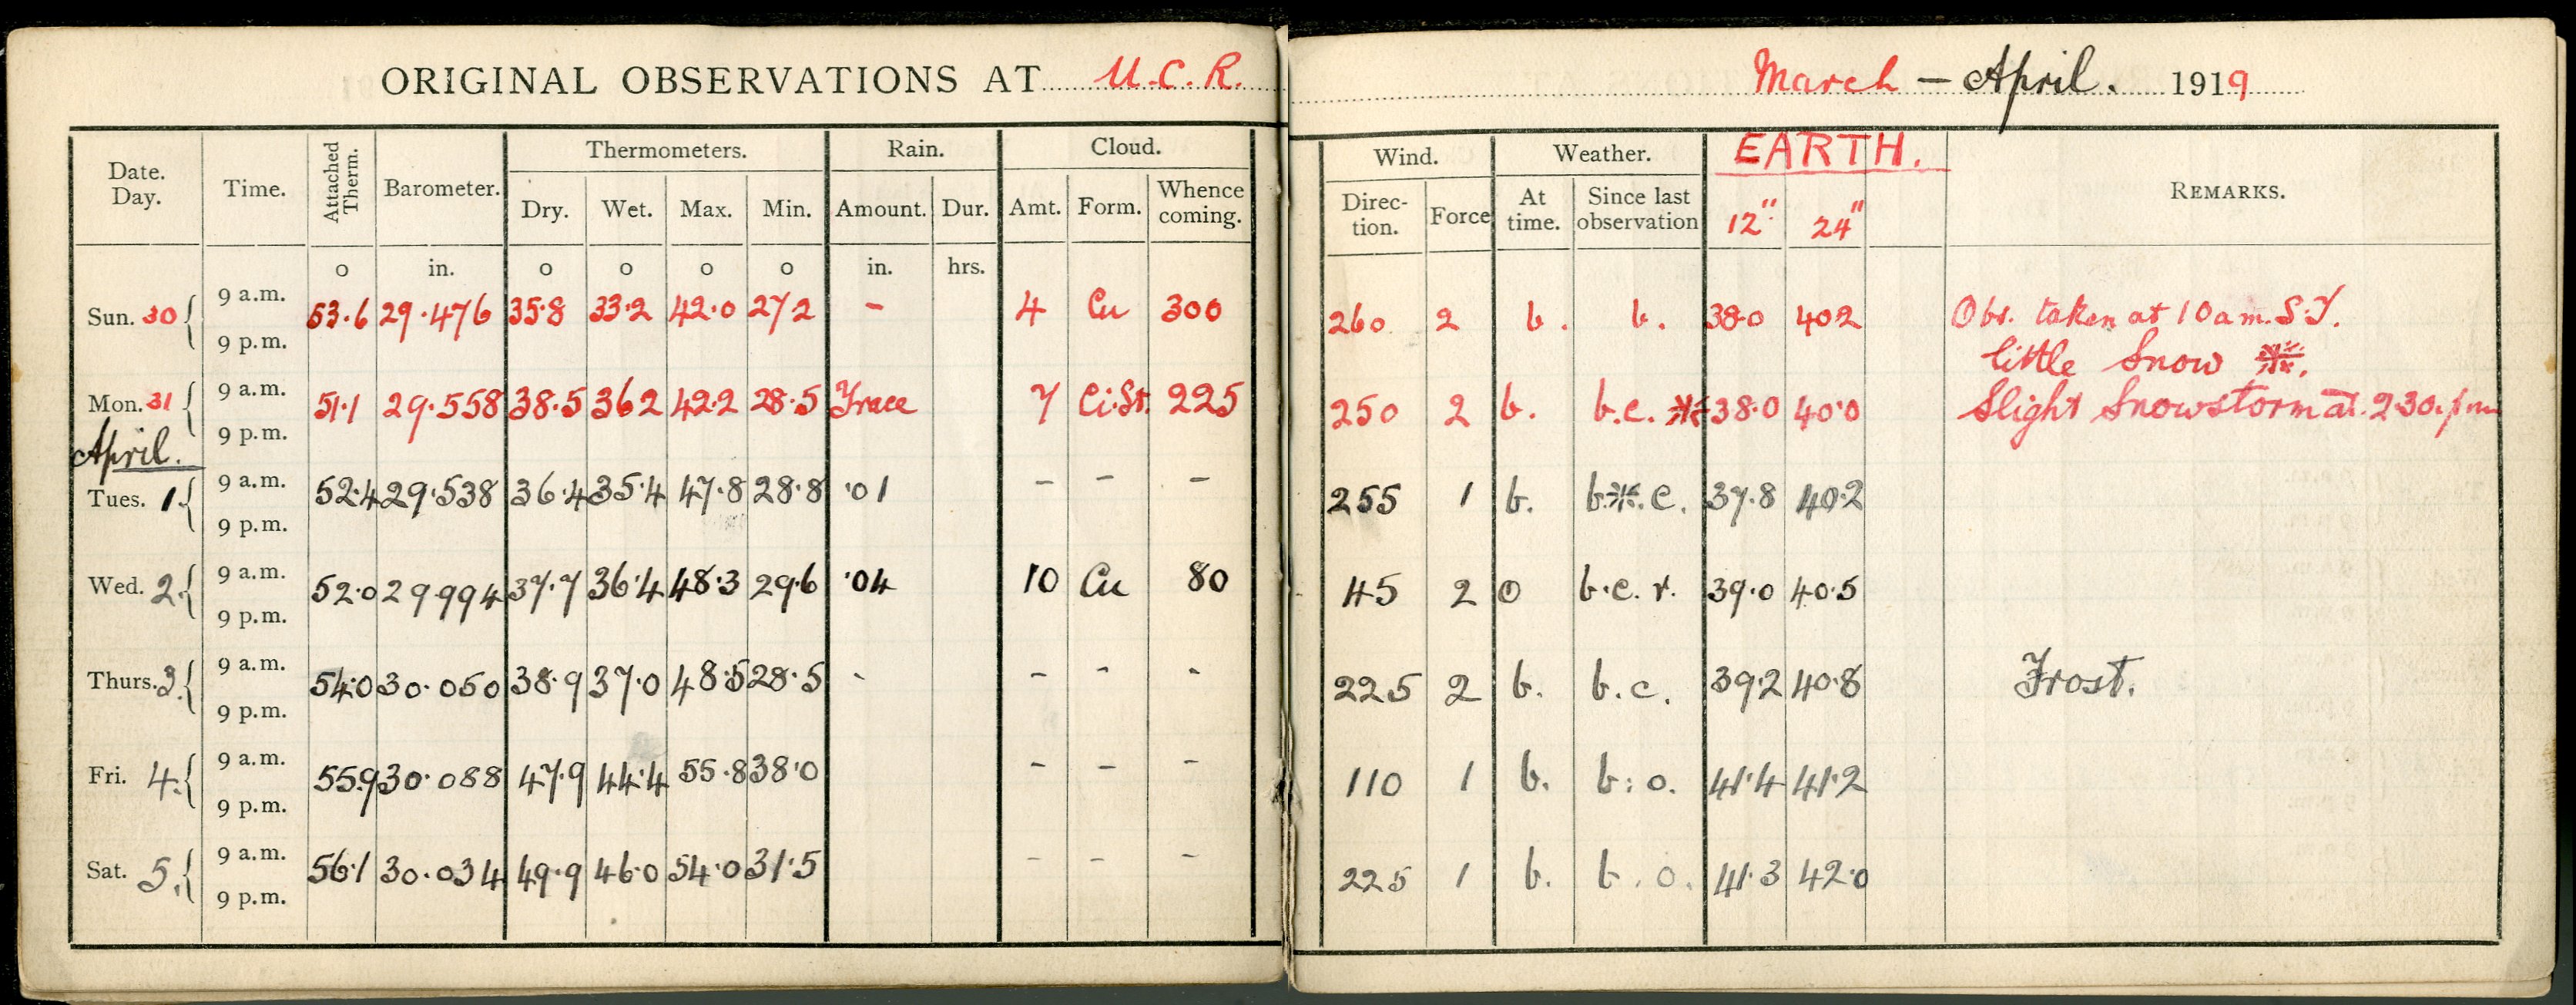 ORIGINAL OBSERVATIONS AT U.C.R. March – April. 1919
Date. Day. Time. Attached Therm. Barometer. Thermometers. Rain. Cloud. Wind. Weather. EARTH. REMARKS.
Dry. Wet. Max. Min. Amount. Dur. Amt. Form. Whence coming. Direc-tion. Force At time. Since last observation 12" 24"
o in. o o o o in. hrs.
Sun. 30 9 a.m. 53.6 29.476 35.8 33.2 42.0 27.2 - 4 Cu 300 260 2 b. b. 38.0 40.2 Obs. taken at 10 a.m. S.T.
9 p.m. little Snow
Mon. 31 9 a.m. 51.1 29.558 38.5 36.2 42.2 28.5 Trace 7 Ci.St. 225 250 2 b. b.c. 38.0 40.0 Slight Snowstorm at 2.30 p.m
9 p.m.
April.
Tues. 1 9 a.m. 52.4 29.538 36.4 35.4 47.8 28.8 .01 - - - 255 1 b. b.*.c. 37.8 40.2
9 p.m.
Wed. 2. 9 a.m. 52.0 29.994 37.7 36.4 48.3 29.6 .04 10 Cu 80 45 2 o b.c.r. 39.0 40.5
9 p.m.
Thurs. 3. 9 a.m. 54.0 30.050 38.9 37.0 48.5 28.5 - - - - 225 2 b. b.c. 39.2 40.8 Frost.
9 p.m.
Fri. 4. 9 a.m. 55.9 30.088 47.9 44.4 55.8 38.0 - - - 110 1 b. b:o. 41.4 41.2
9 p.m.
Sat. 5. 9 a.m. 56.1 30.034 49.9 46.0 54.0 31.5 - - - 225 1 b. b.o. 41.3 42.0
9 p.m.